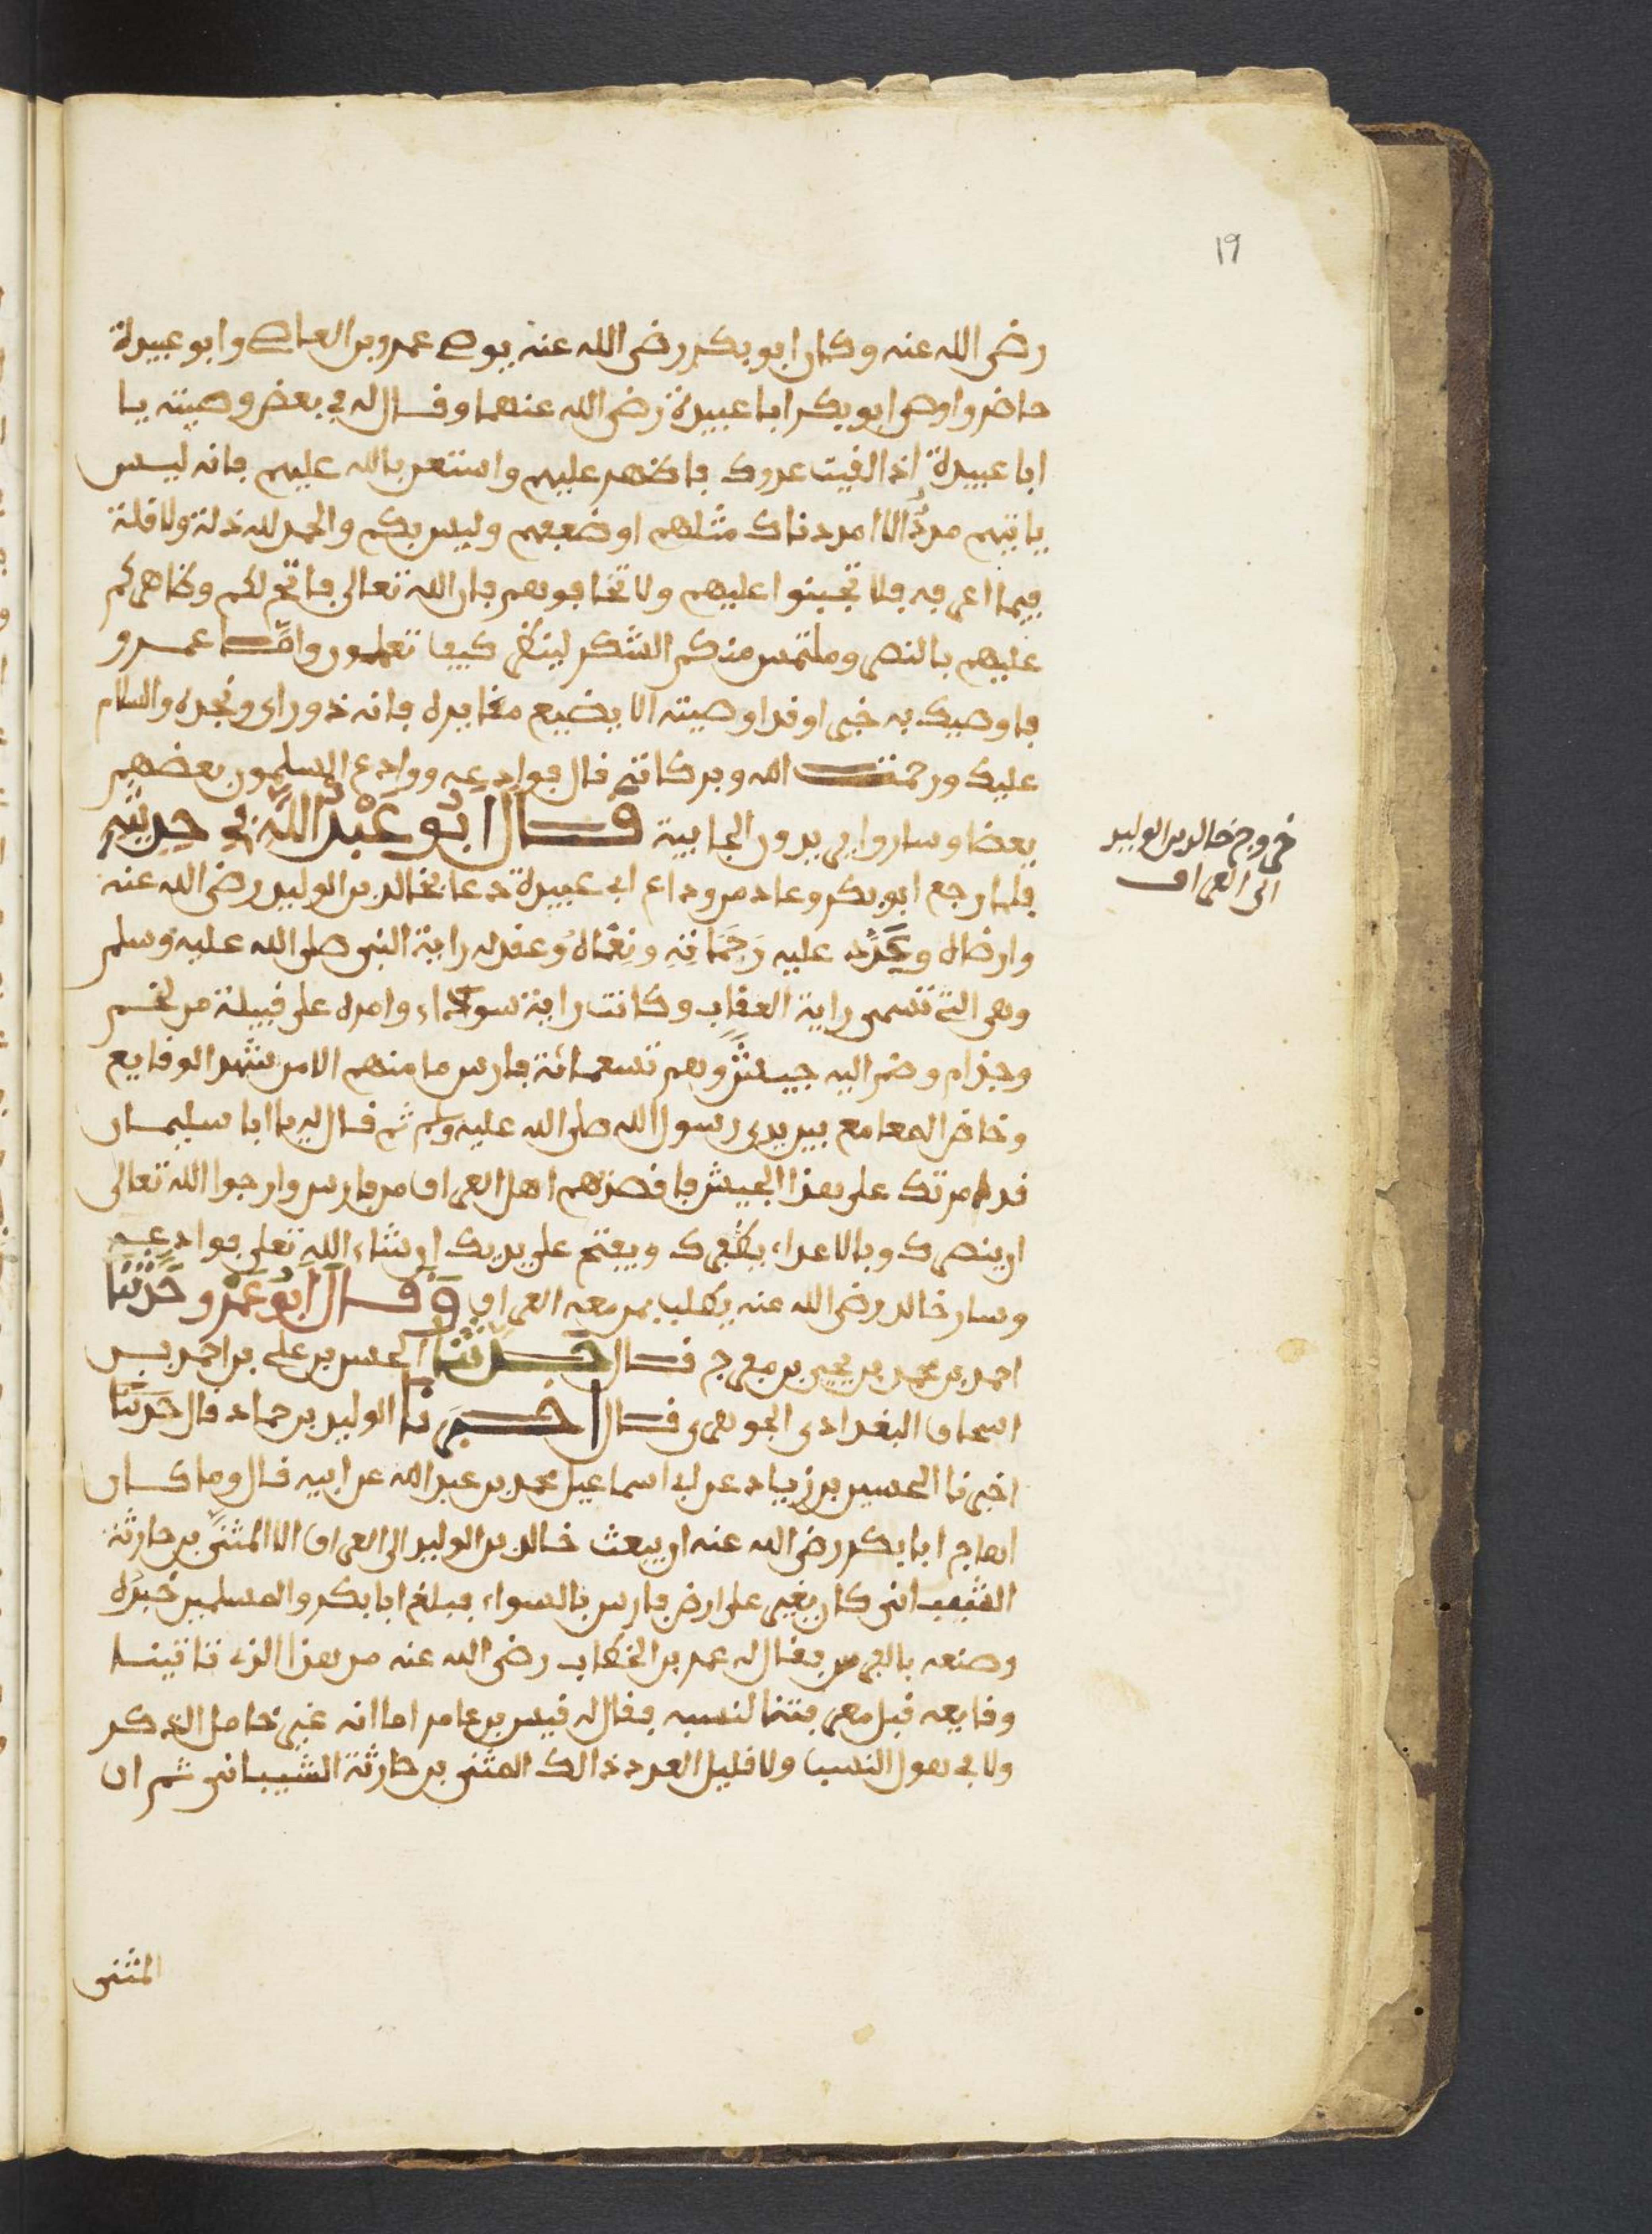 19
رضى الله عنه وكان ابو بكر رضى الله عنه يوص عمرو بن العاص وابو عبيدة
حاضر واوصى ابو بكر ابا عبيدة رضى الله عنهما وقال له في بعض وصيته يا
ابا عبيدة اذا لقيت عدوك فاظهر عليهم واستعن بالله عليهم فانه ليس
ياتيهم مدد الا امددناك مثلهم او ضعفهم وليس بكم والحمد لله ذلة ولا قلة
فلا تجبنوا عليهم ولا تخافوهم فان الله تعالى فاتح لكم وظاهركم
عليهم بالنصر وملتمس منكم الشكر لينظر كيف تعملون واما عمرو
فاوصيك به خيرا وقد اوصيته الا يضيع فانه ذو راى ونجدة والسلام
عليك ورحمت الله وبركاته قال فوادعه ووادع المسلمون بعضهم
بعضا وساروا يريدون الجابية قال ابو عبد الله في حديثه
خروج خالد بن الوليد
الى العراق
فلما رجع ابو بكر وعاد من وداع ابي عبيدة دعا بخالد بن الوليد رضى الله عنه
وارضاه عليه وعقد له راية النبى صلى الله عليه وسلم
وهى التي تسمى راية العقاب وكانت راية سوداء وامره على قبيلة من لخم
وجذام وضم اليه جيش وهم تسعمائة فارس ما منهم الا من شهد الوقايع
وخاض المعامع بين يدى رسول الله صلى الله عليه وسلم ثم قال له يا ابا سليمان
قد امرتك على هذا الجيش فاقصد بهم اهل العراق من فارس وارجوا الله تعالى
ان ينصرك وبالاعداء يظفرك ويفتح على يديك ان شاء الله تعلى فوادعه
وسار خالد رضى الله عنه يطلب بمن معه العراق وقال ابو عمرو حدثنا
احمد بن محمد بن يحيى بن مفرج قال حدثنا الحسن بن على بن احمد بن
اسحاق البغدادى الجوهرى قال اخبرنا الوليد بن حماد قال حدثنا
اخبرنا الحسين بن زياد عن ابي اسماعيل محمد بن عبد الله عن ابيه قال وما كان
اهاج ابا بكر رضى الله عنه ان يبعث خالد بن الوليد الى العراق الا المثنى بن حارثة
الشيبانى كان يغير على ارض فارس بالسواد فبلغ ابا بكر والمسلمين خبره
وصنعه بالفرس فقال له عمر بن الخطاب رضى الله عنه من هذا الذى تاتينا
وقايعه قبل معرفتنا لنسبه فقال له قيس بن عامر اما انه غير خامل الذكر
ولا مجهول النسب ولا قليل العدد ذالك المثنى بن حارثة الشيبانى ثم ان
المثنى